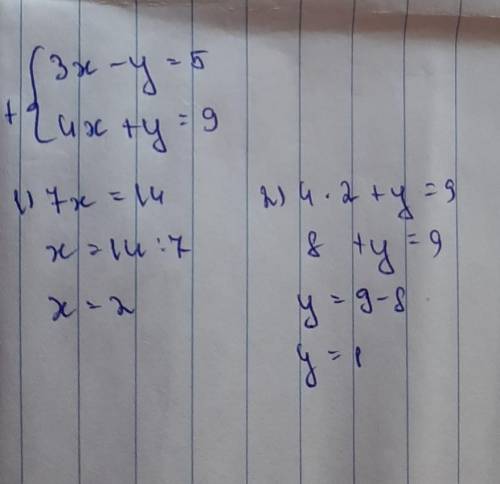 + { 3x - y = 5
4x + y = 9
1) 7x = 14
x = 14 : 7
x = 2
2) 4 · 2 + y = 9
8 + y = 9
y = 9 - 8
y = 1